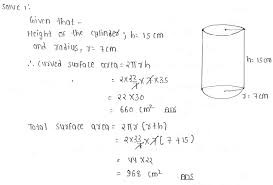 Solve 1:
Given that -
Height of the cylinder, h = 15cm
and radius, r = 7cm
∴ Curved surface area = 2πrh
= 2×22/7×7×15
= 22×30
= 660 cm² Ans
Total surface area = 2πr(r+h)
= 2×22/7×7(7+15)
= 44×22
= 968 cm² Ans
h = 15cm
r = 7cm